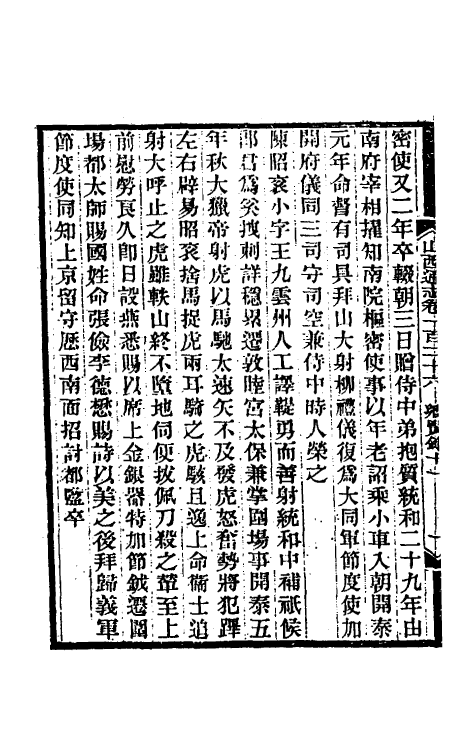 山西通志卷一百三十六　鄉賢錄十一
密使又二年卒輟朝三日贈侍中弟抱質統和二十九年由
南府宰相擢知南院樞密使事以年老詔乘小車入朝開泰
元年命督有司具拜山大射柳禮儀復爲大同軍節度使加
開府儀同三司守司空兼侍中時人榮之
陳昭袞小字王九雲州人工譯鞮勇而善射統和中補祗候
郎君爲奚拽剌詳穩累遷敦睦宮太保兼掌圍場事開泰五
年秋大獵帝射虎以馬馳太速矢不及發虎怒奮勢將犯蹕
左右辟易昭袞捨馬捉虎兩耳騎之虎駭且逸上命衛士追
射大呼止之虎雖軼山終不墮地伺便拔佩刀殺之輦至上
前慰勞良久卽日設燕悉賜以席上金銀器特加節鉞遷圍
場都太師賜國姓命張儉李德懋賜詩以美之後拜歸義軍
節度使同知上京留守歷西南面招討都監卒